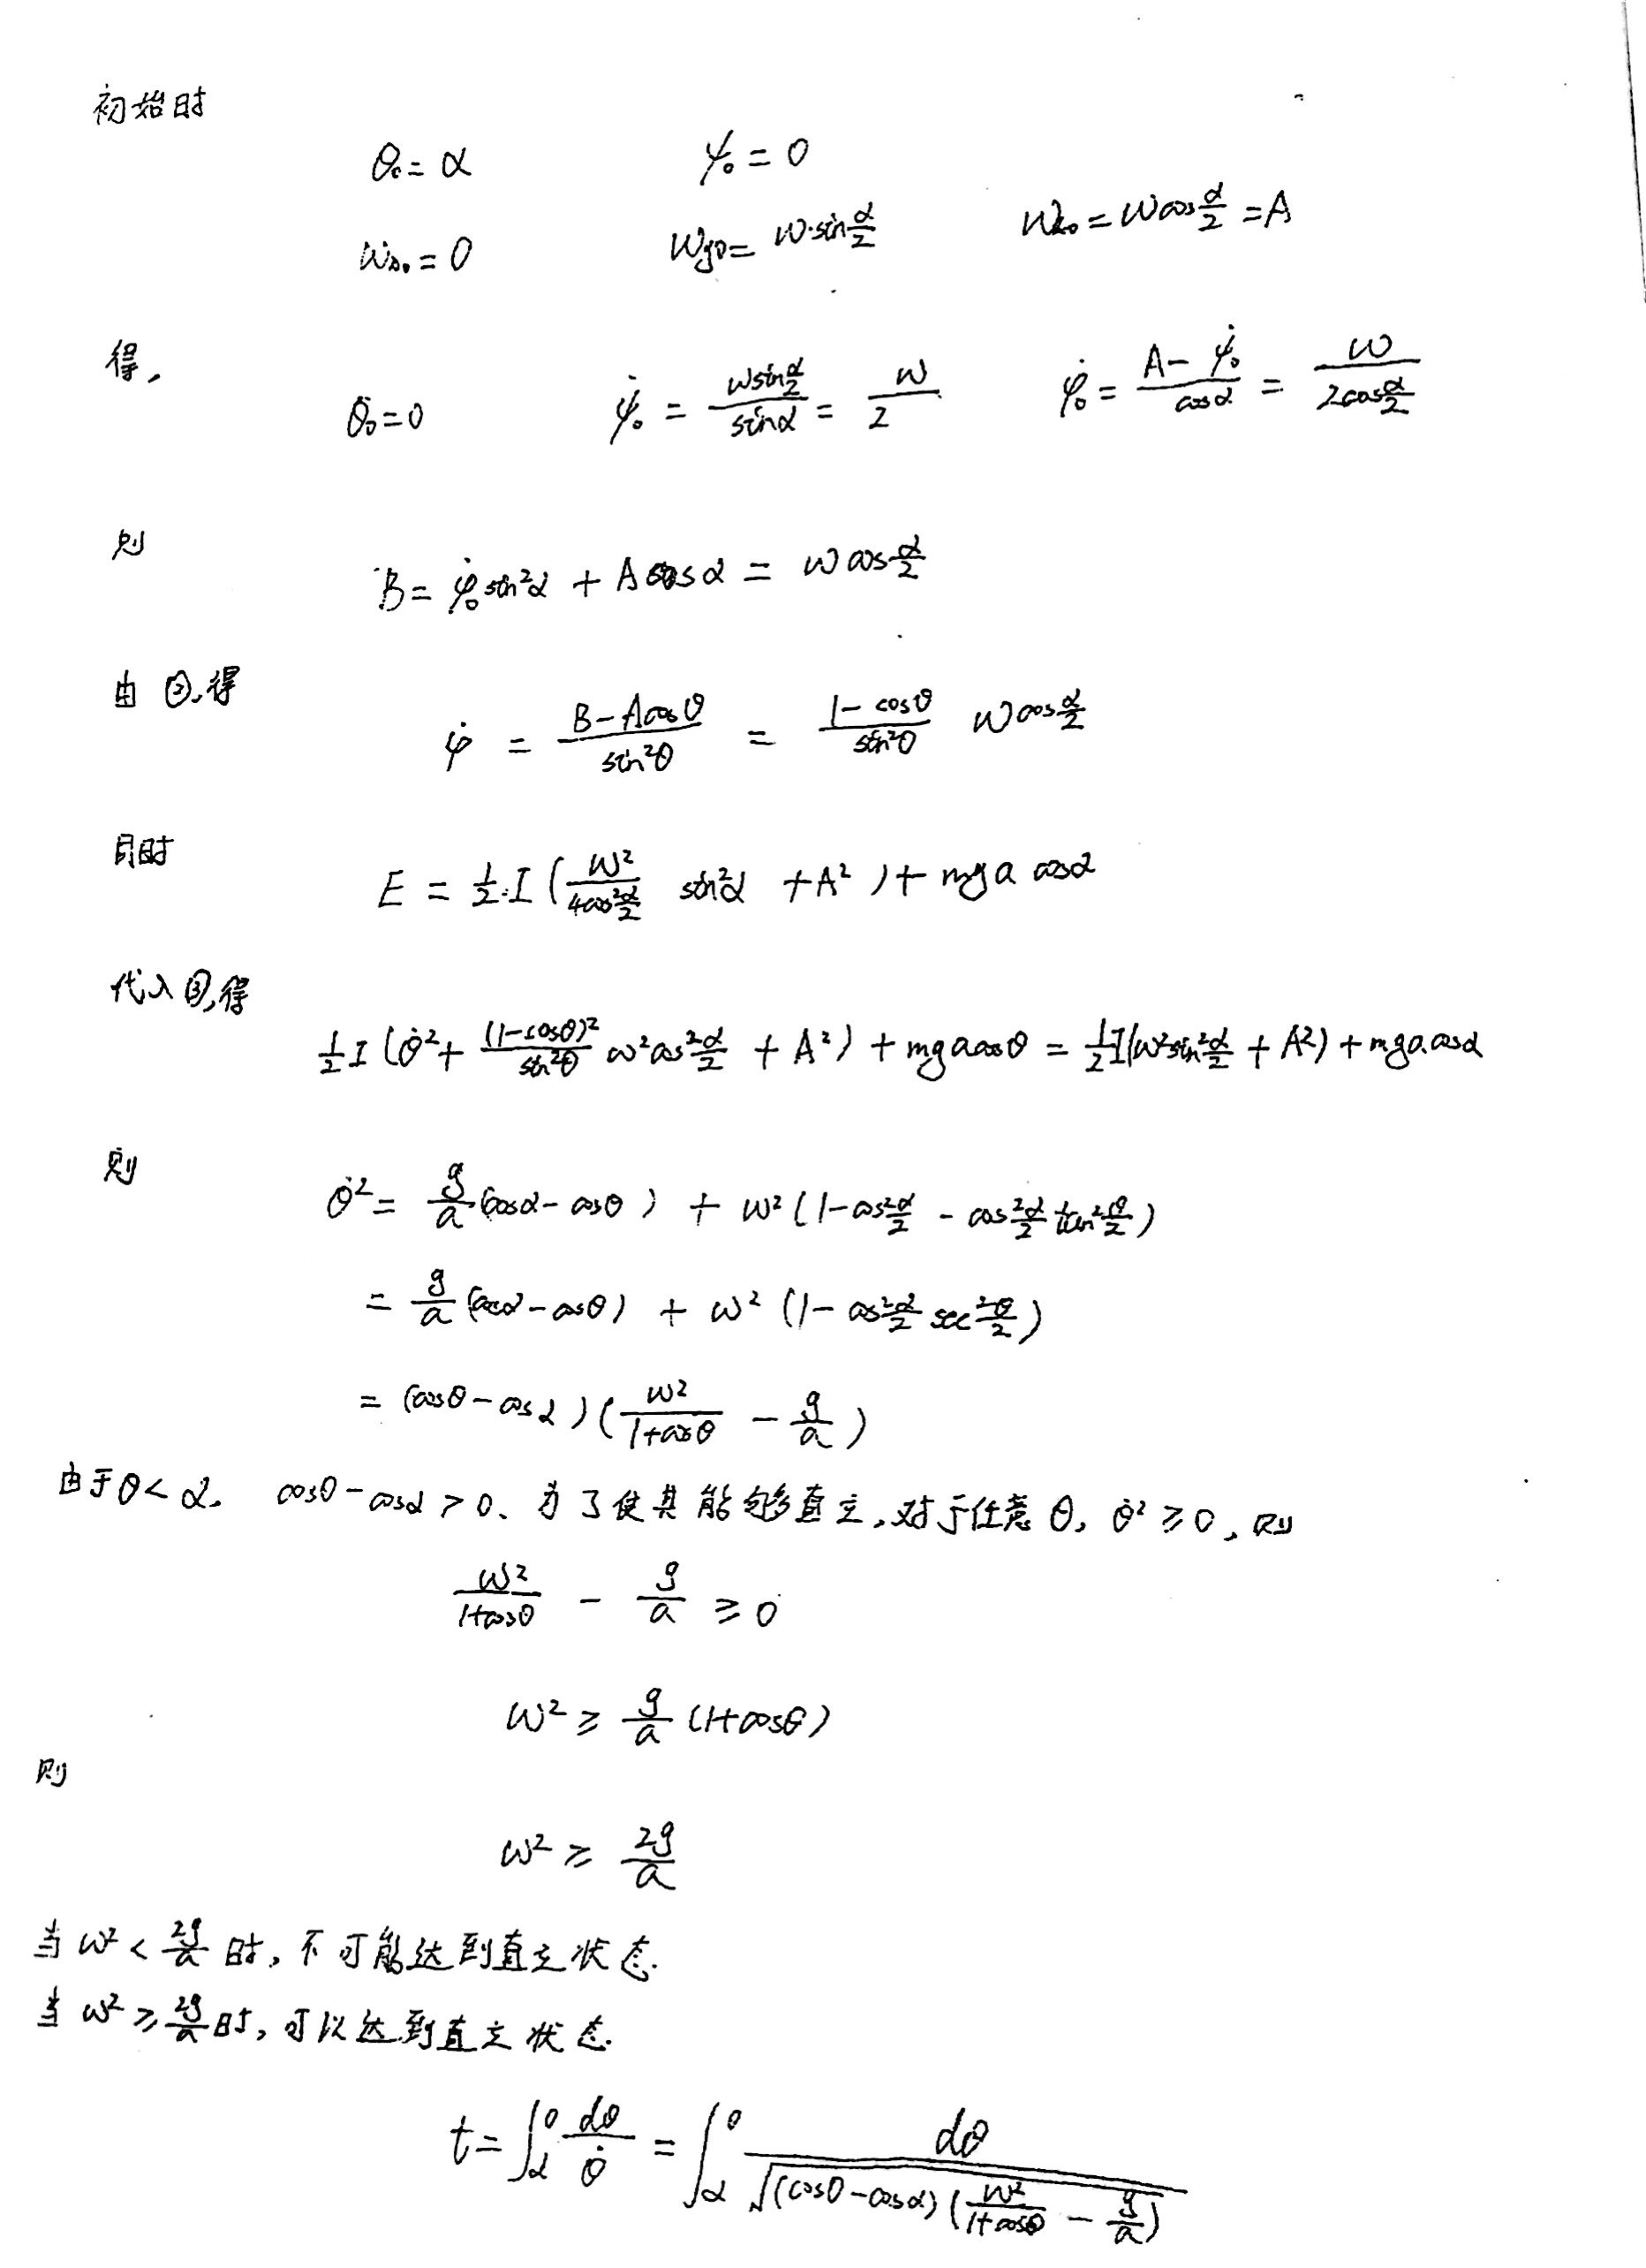 初始时
θ₀ = α ψ₀ = 0
ωx₀ = 0 ωy₀ = ω·sin α/2 ωz₀ = ω cos α/2 = A
得,
θ̇₀ = 0 ψ̇₀ = ω sin α/2 / sin α = ω / 2 φ̇₀ = (A − ψ̇₀) / cos α = ω / (2cos α/2)
则
B = φ̇₀ sin²α + A cos α = ω cos α/2
由 ②,得
φ̇ = (B − A cos θ) / sin²θ = (1 − cos θ) / sin²θ ω cos α/2
同时
E = 1/2·I (ω² / (4cos² α/2) sin²α + A²) + mga cos α
代入 ③,得
1/2 I (θ̇² + (1−cosθ)² / sin²θ ω² cos² α/2 + A²) + mga cos θ = 1/2 I (ω² sin² α/2 + A²) + mga cos α
则
θ̇² = g/a (cos α − cos θ) + ω² (1 − cos² α/2 − cos² α/2 tan² θ/2)
= g/a (cos α − cos θ) + ω² (1 − cos² α/2 sec² θ/2)
= (cos θ − cos α) (ω² / (1+cos θ) − g/a)
由于 θ < α, cos θ − cos α > 0、为了使其能够直立,对于任意 θ, θ̇² ≥ 0, 则
ω² / (1+cos θ) − g/a ≥ 0
ω² ≥ g/a (1+cos θ)
则
ω² ≥ 2g/a
当 ω² < 2g/a 时, 不可能达到直立状态.
当 ω² ≥ 2g/a 时, 可以达到直立状态.
t = ∫_α^0 dθ / θ̇ = ∫_α^0 dθ / √((cos θ − cos α) (ω² / (1+cos θ) − g/a))